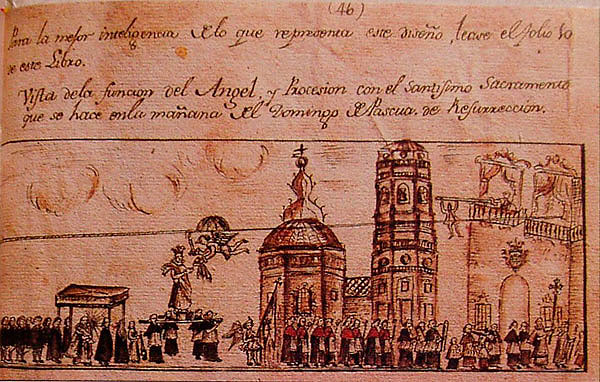 (46)
Para la mejor inteligencia de lo que representa este diseño, lease el folio 10
de este Libro.
Vista de la funcion del Angel, y Procesion con el Santisimo Sacramento
que se hace en la mañana del Domingo de Pascua de Resurrección.